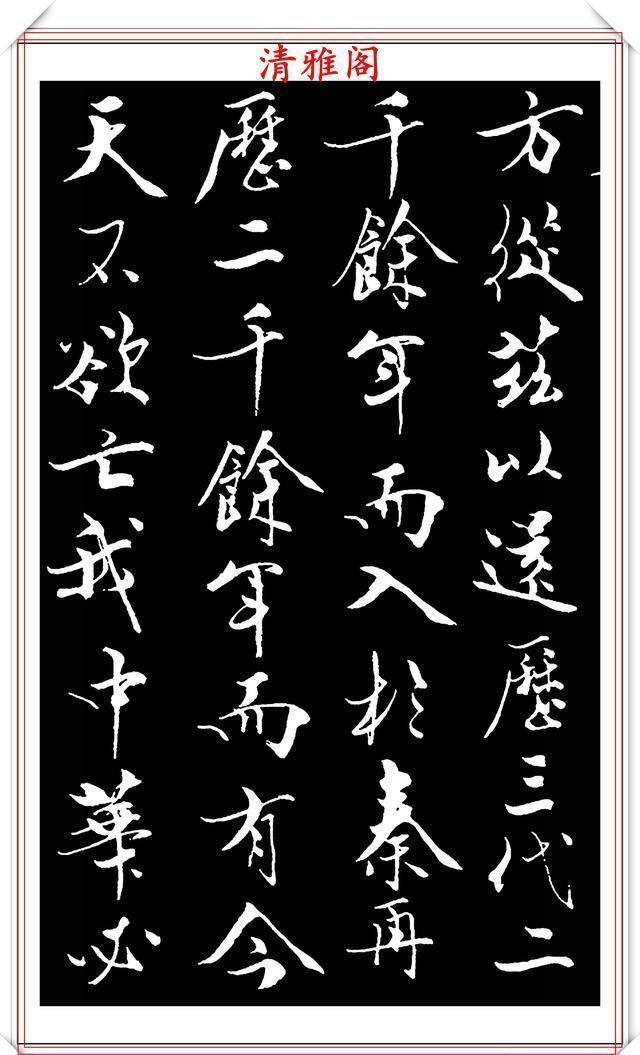 清雅阁
方從茲以還歷三代二
千餘年而入於秦再
歷二千餘年而有今
天不欲亡我中華必